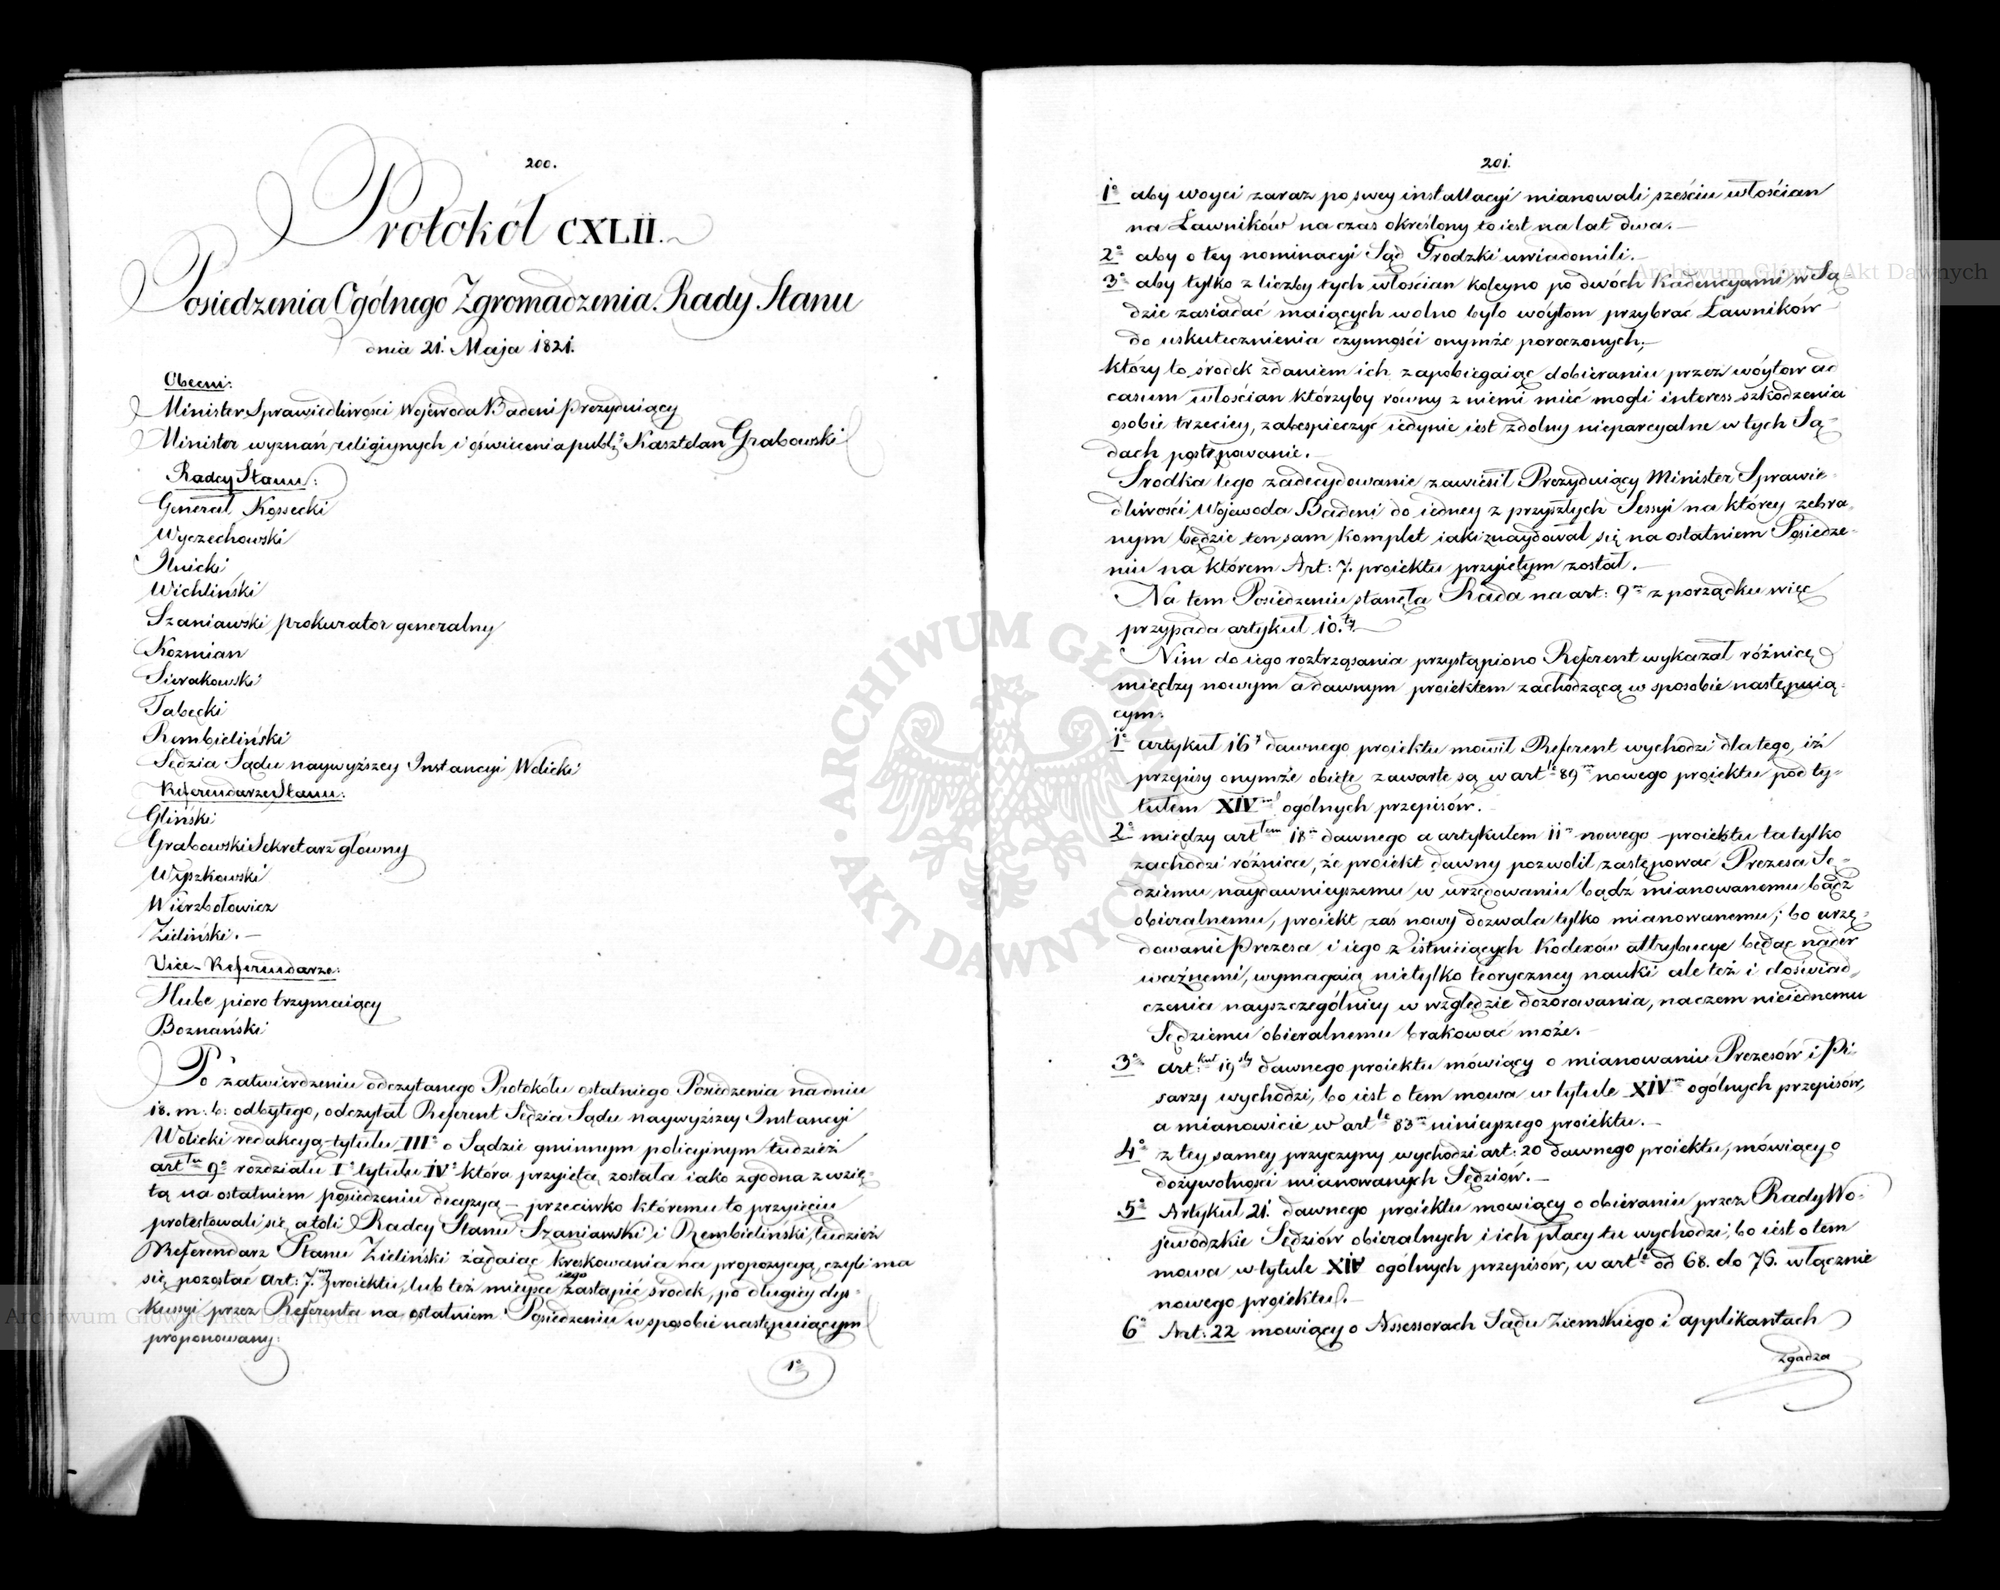 200.
Protokół CXLII.
Posiedzenia Ogólnego Zgromadzenia Rady Stanu
dnia 21. Maja 1821.
Obecni:
Minister Sprawiedliwości Wojewoda Badeni Prezyduiący
Minister wyznań religiynych i oświecenia publ: Kasztelan Grabowski
Radcy Stanu:
Generał Kossecki
Wyczechowski
Ilnicki
Wichliński
Szaniawski prokurator generalny
Kozmian
Sierakowski
Tabęcki
Rembieliński
Sędzia Sądu naywyższey Instancyi Wolicki
Referendarze Stanu:
Gliński
Grabowski Sekretarz główny
Wyszkowski
Wierzbołowicz
Zieliński. –
Vice-Referendarze:
Hube pioro trzymaiący
Boznański
Po zatwierdzeniu odczytanego Protokółu ostatniego Posiedzenia na dniu
18. m: b: odbytego, odczytał Referent Sędzia Sądu naywyższey Instancyi
Wolicki redakcyą tytułu IIIº o Sądzie gminnym policyinym tudzież
art:łu 9º rozdziału Iº tytułu IVº która przyiętą została iako zgodna z wzię-
tą na ostatniem posiedzeniu decyzyą – przeciwko któremu to przyięciu
protestowali się atoli Radcy Stanu Szaniawski i Rembieliński, tudzież
Referendarz Stanu Zieliński żądaiąc kreskowania na propozycyą, czyli ma
się pozostać art: 7.my proiektu, lub też mieysce iego zastąpić środek, po długiey dys-
kussyi przez Referenta na ostatniem Posiedzeniu w sposobie następuiącym
proponowany:
1º
201.
1º aby woyci zaraz po swey installacyi mianowali sześciu włościan
na Ławników na czas określony to iest na lat dwa. –
2º aby o tey nominacyi Sąd Grodzki uwiadomili. –
3º aby tylko z liczby tych włościan koleyno po dwóch kadencyami w Są-
dzie zasiadać maiących wolno było wóytom przybrać Ławników
do uskutecznienia czynności onymże poroczonych; –
który to środek zdaniem ich zapobiegaiąc dobieraniu przez wóytów ad
casum włościan którzyby równy z niemi mieć mogli interess szkodzenia
osobie trzeciey, zabespieczyć iedynie iest zdolny nieparcyalne w tych Są-
dach postępowanie. –
Srodka tego zadecydowanie zawiesił Prezyduiący Minister Sprawie-
dliwości Wojewoda Badeni do iedney z przyszłych Sessyi na którey zebra-
nym będzie ten sam komplet iaki znaydował się na ostatniem Posiedze-
niu na którem Art: 7. proiektu przyiętym został. –
Na tem Posiedzeniu stanęła Rada na art: 9m z porządku więc
przypada artykuł 10.ty –
Nim do iego roztrząsania przystąpiono Referent wykazał różnicę
między nowym a dawnym proiektem zachodzącą w sposobie następuią-
cym:
1º artykuł 16y dawnego proiektu mówił Referent wychodzi dlatego, iż
przepisy onymże obięte zawarte są w artle 89m nowego proiektu pod ty-
tułem XIVm ogólnych przepisów. –
2º między arttem 18m dawnego a artykułem 11m nowego proiektu ta tylko
zachodzi różnica, że proiekt dawny pozwolił zastępować Prezesa Sę-
dziemu naydawnieyszemu w urzędowaniu bądź mianowanemu bądź
obieralnemu, proiekt zaś nowy dozwala tylko mianowanemu; bo urzę-
dowanie Prezesa i iego z istnieiących Kodexów attrybucye będąc nader
ważnemi, wymagaią nietylko teoryczney nauki ale też i doświad-
czenia nayszczególniey w względzie dozorowania, na czem nieiednemu
Sędziemu obieralnemu brakować może. –
3º art:kuł 19sty dawnego proiektu mówiący o mianowaniu Prezesów i Pi-
sarzy wychodzi, bo iest o tem mowa w tytule XIVm ogólnych przepisów,
a mianowicie w artle 83m ninieyszego proiektu. –
4º z tey samey przyczyny wychodzi art: 20 dawnego proiektu, mówiący o
dożywotności mianowanych Sędziów. –
5º Artykuł 21. dawnego proiektu mówiący o obieraniu przez Rady Wo-
jewódzkie Sędziów obieralnych i ich płacy tu wychodzi, bo iest o tem
mowa w tytule XIV ogólnych przepisów, w artle od 68. do 76. włącznie
nowego proiektu. –
6º Art: 22 mówiący o Assessorach Sądu Ziemskiego i applikantach
zgadza
Archiwum Główne Akt Dawnych
Archiwum Główne Akt Dawnych
ARCHIWUM GŁÓWNE AKT DAWNYCH